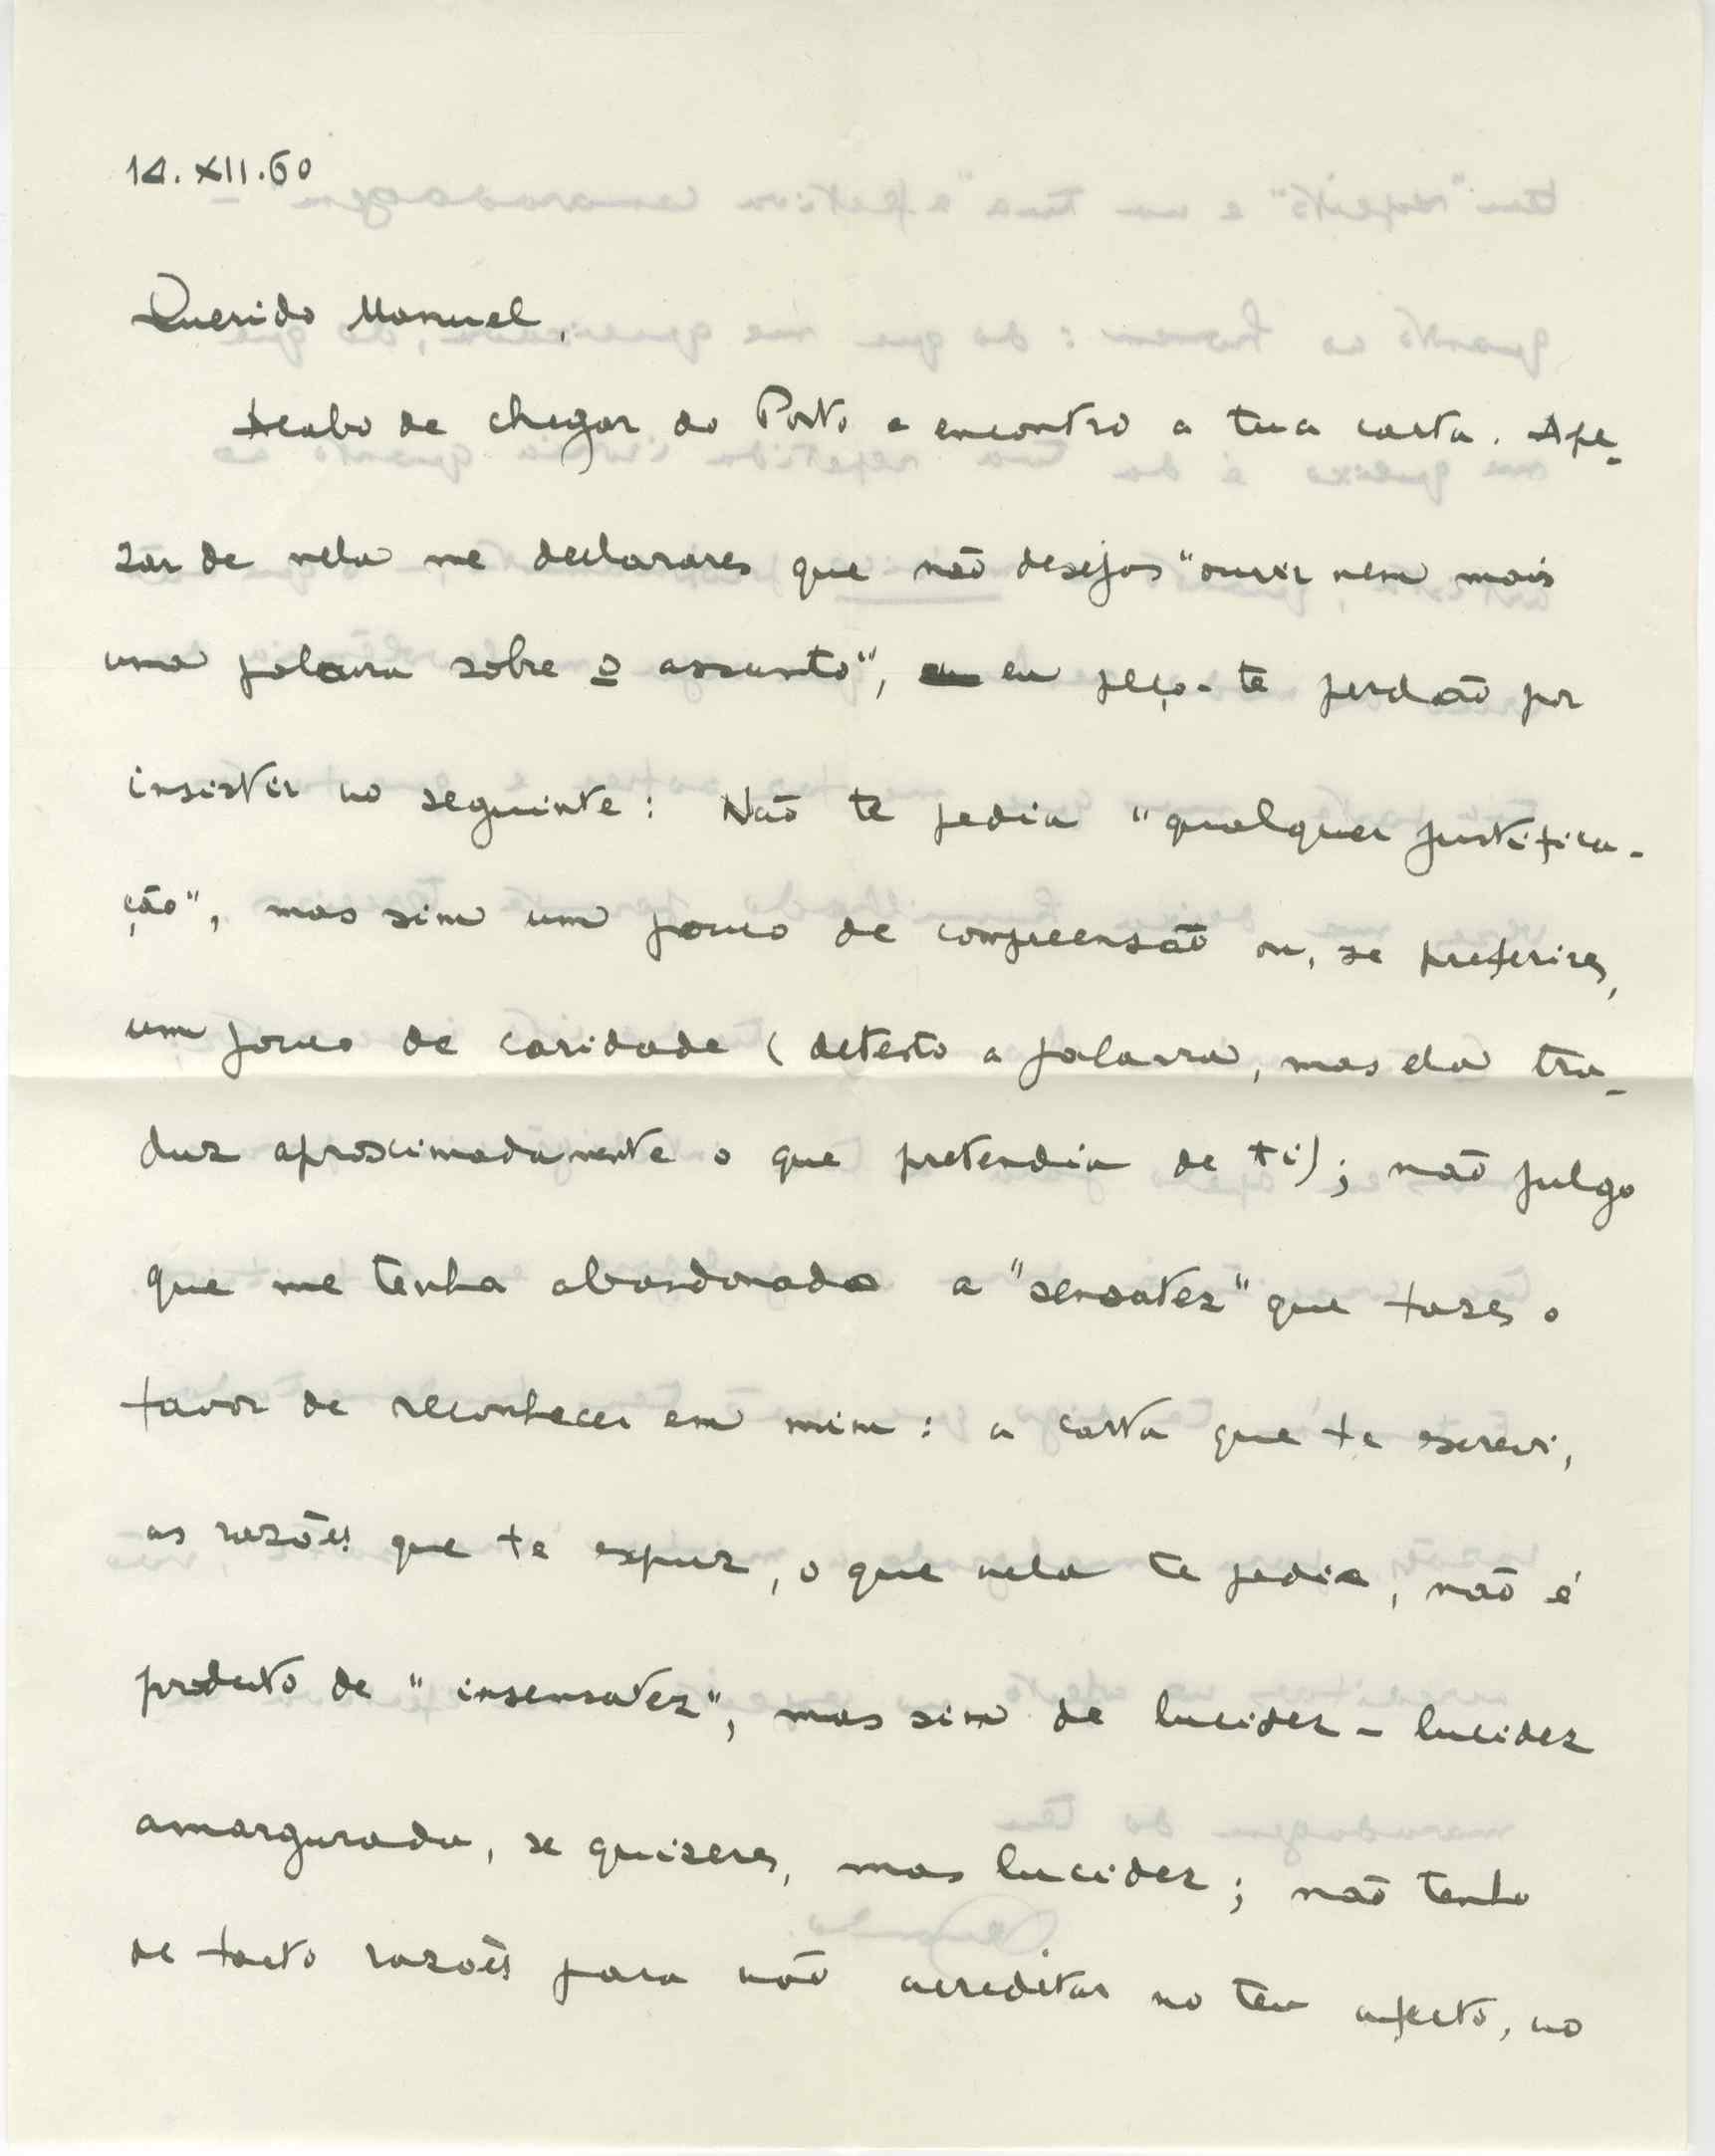 14.XII.60
Querido Manuel,
Acabo de chegar do Porto e encontro a tua carta. Ape-
zar de nela me declarares que não desejas "ouvir nem mais
uma palavra sobre o assunto", eu peço-te perdão por
insistir no seguinte: Não te pedia "qualquer justifica-
ção", mas sim um pouco de compreensão ou, se preferires,
um pouco de caridade (detesto a palavra, mas ela tra-
duz aproximadamente o que pretendia de ti); não julgo
que me tenha abandonado a "sensatez" que fazes o
favor de reconhecer em mim: a carta que te escrevi,
as razões que te expuz, o que nela te pedia, não é
producto de "insensatez", mas sim de lucidez - lucidez
amargurada, se quizeres, mas lucidez; não tenho
de facto razões para não acreditar no teu afecto, no